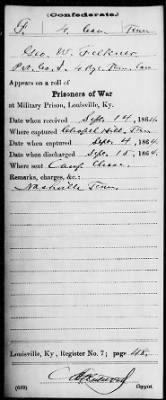 (Confederate)
F 4 Cav Tenn
Geo. W. Felkner
Pvt. Co. I, 4 Reg. Tenn. Cav.
Appears on a roll of
Prisoners of War
at Military Prison, Louisville, Ky.
Date when received Sept. 14, 1864
Where captured Chapel Hill, Tenn
Date when captured Sept. 4, 1864
Date when discharged Sept. 15, 1864
Where sent Camp Chase
Remarks, charges, &c.:
Nashville Tenn
Louisville, Ky., Register No. 7; page 48
(639) Copyist.